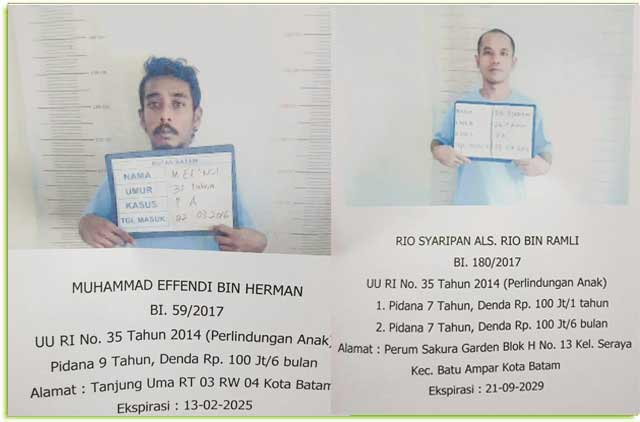 RUTAN BATAM
NAMA
UMUR
KASUS
TGL MASUK
MUHAMMAD EFFENDI BIN HERMAN
BI. 59/2017
UU RI No. 35 Tahun 2014 (Perlindungan Anak)
Pidana 9 Tahun, Denda Rp. 100 Jt/6 bulan
Alamat : Tanjung Uma RT 03 RW 04 Kota Batam
Ekspirasi : 13-02-2025
RIO SYARIPAN ALS. RIO BIN RAMLI
BI. 180/2017
UU RI No. 35 Tahun 2014 (Perlindungan Anak)
1. Pidana 7 Tahun, Denda Rp. 100 Jt/1 tahun
2. Pidana 7 Tahun, Denda Rp. 100 Jt/6 bulan
Alamat : Perum Sakura Garden Blok H No. 13 Kel. Seraya
Kec. Batu Ampar Kota Batam
Ekspirasi : 21-09-2029